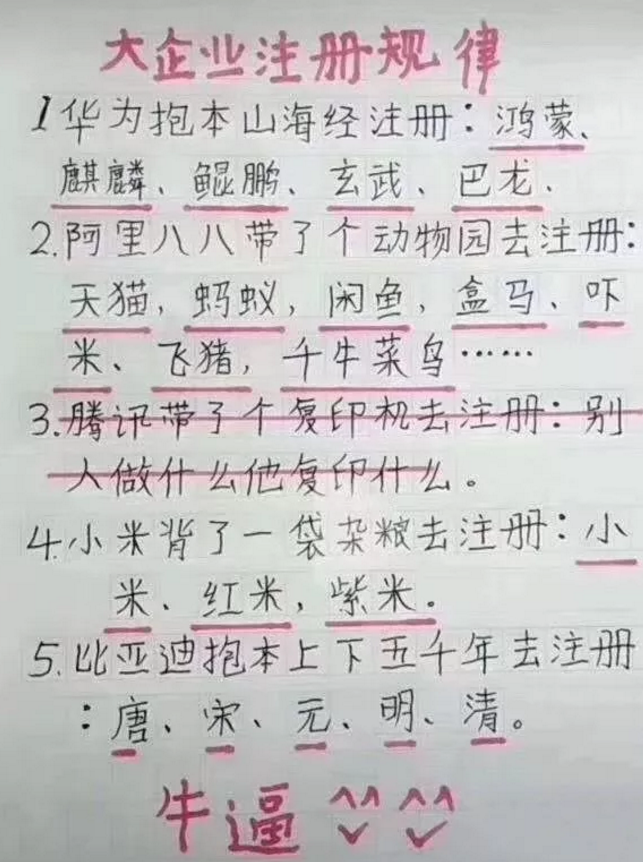 大企业注册规律
1华为抱本山海经注册：鸿蒙、
麒麟、鲲鹏、玄武、巴龙、
2.阿里八八带了个动物园去注册：
天猫，蚂蚁，闲鱼，盒马、吓
米、飞猪，千牛菜鸟……
3.腾讯带了个复印机去注册：别
人做什么他复印什么。
4.小米背了一袋杂粮去注册：小
米、红米，紫米。
5.比亚迪抱本上下五千年去注册
：唐、宋、元、明、清。
牛逼